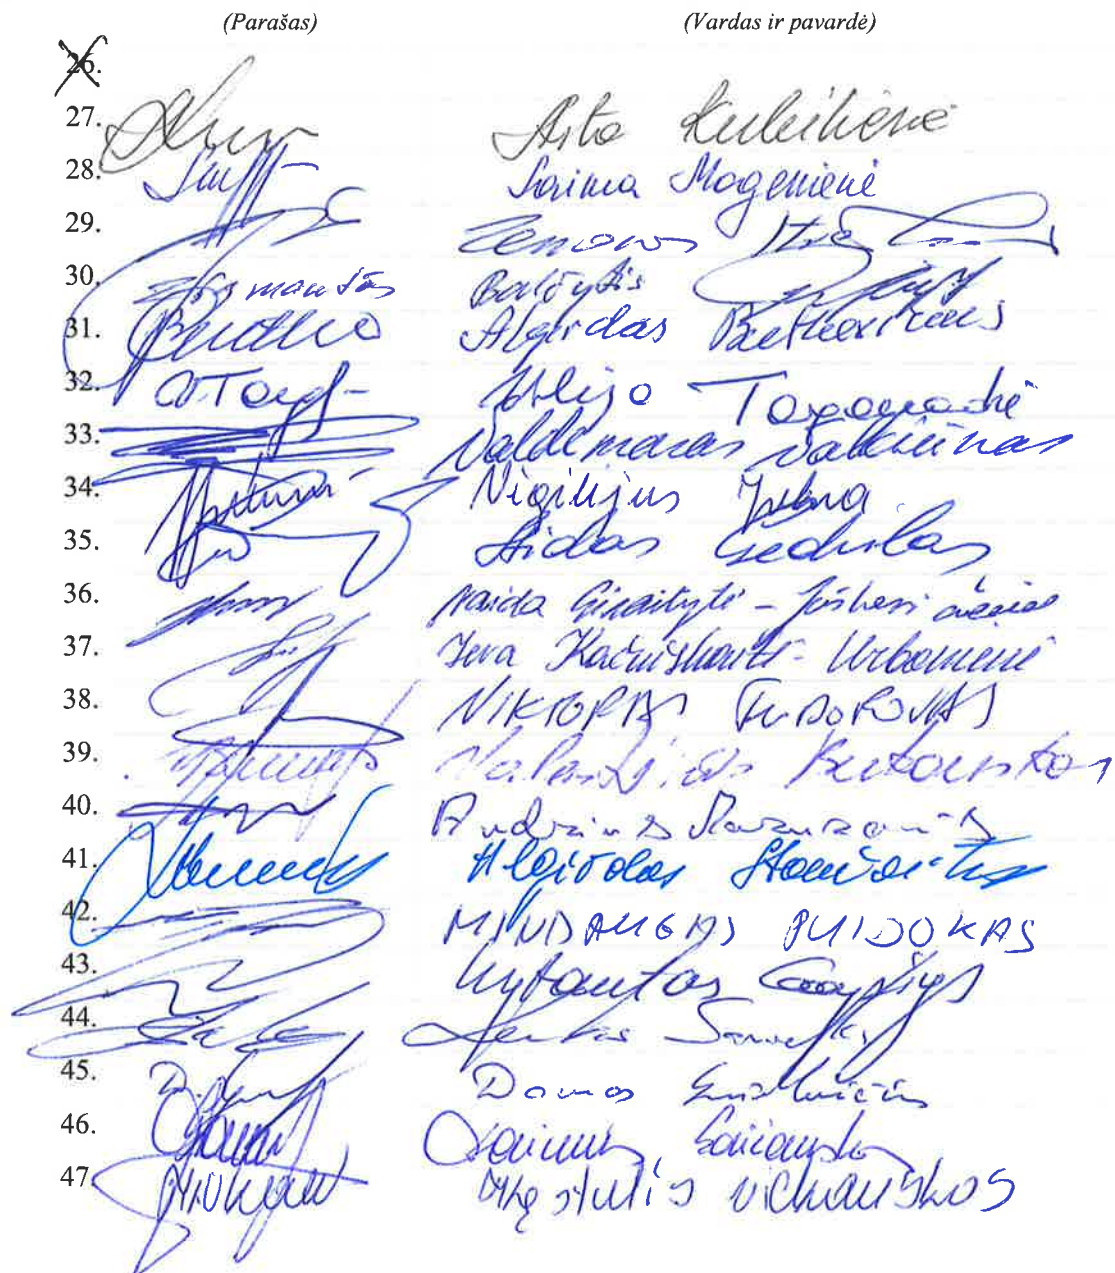 (Parašas) (Vardas ir pavardė)
26.
27. Asta Kubilienė
28. Laima Mogenienė
29. Zenonas
30. Žygimantas Balčytis
31. Butke Algirdas Butkevičius
32. Targ
33. Valdemaras Valkiūnas
34. Vigilijus Jukna
35. Aidas Gedvilas
36. Vaida Giraitytė - Juškevičienė
37. Ieva Kačinskaitė - Urbonienė
38. VIKTORAS FIODOROVAS
39. Valentinas Bukauskas
40. Andrius Mazuronis
41. Algirdas Stončaitis
42. MINDAUGAS PUIDOKAS
43. Vytautas Gapšys
44. Lukas Savickas
45. Domas Griškevičius
46.
47. Kęstutis Vilkauskas